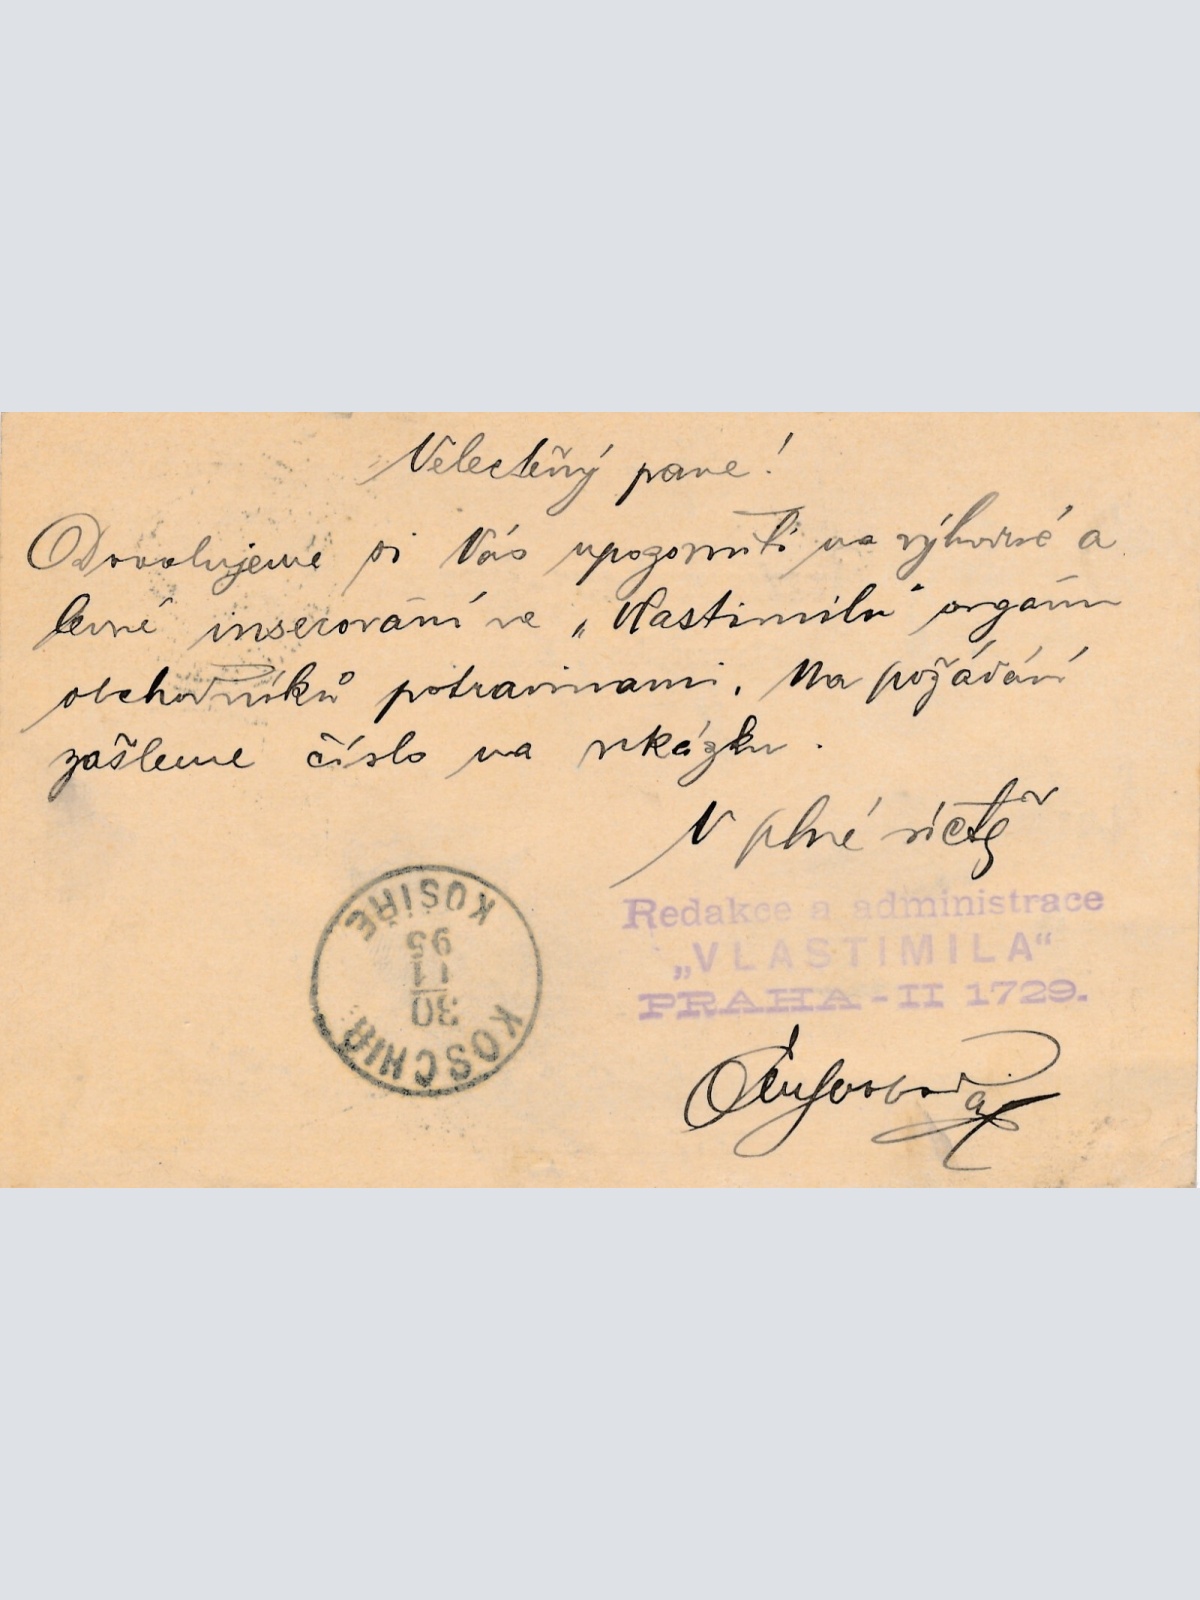 Velectěný pane!
Dovolujeme si Vás upozorniti na výhodné a
levné inserování ve „Vlastimilu“ orgánu
obchodníků potravinami. Na požádání
zašleme číslo na ukázku.
V plné úctě
Redakce a administrace
„VLASTIMILA“
PRAHA-II 1729.
KOŠÍŘE
95
11
30
KOSCHIŘ